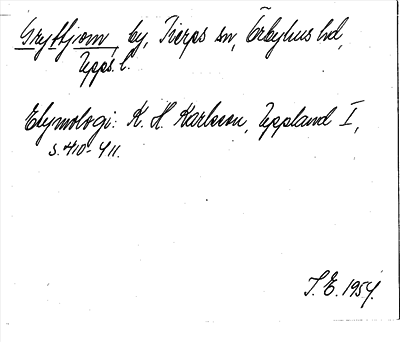 Gryttjom, by, Tierps sn, Örbyhus hd,
Upps. l.
Etymologi: K. H. Karlsson, Uppland I,
s. 410-411.
T. E. 1954.